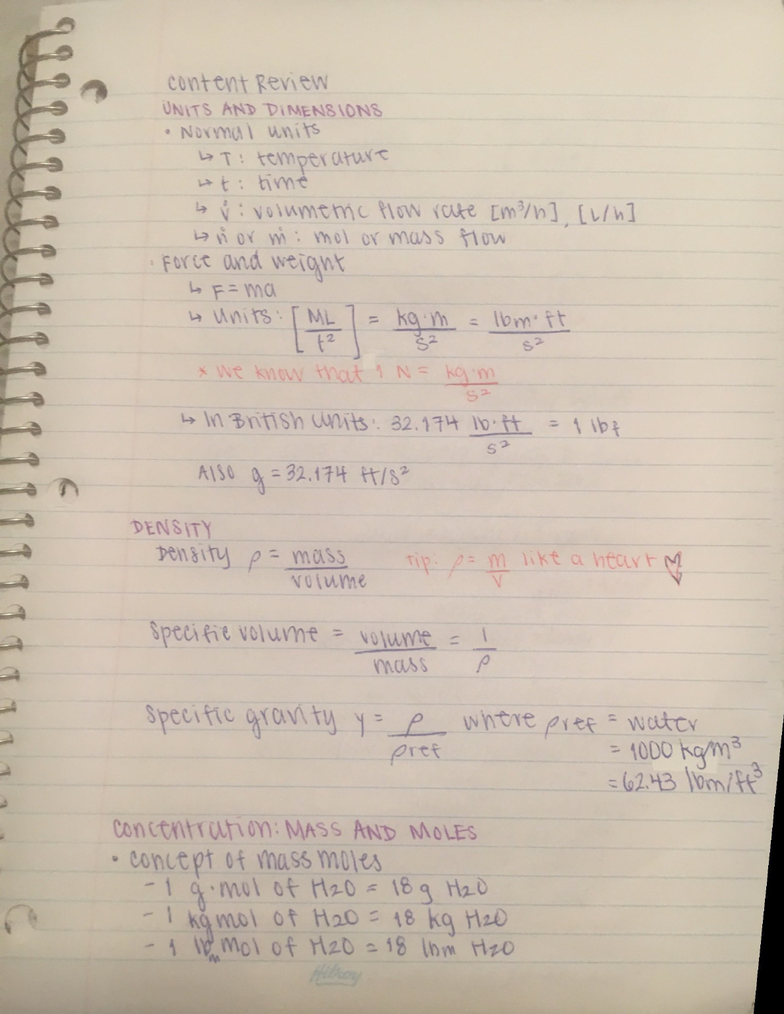 Content Review
UNITS AND DIMENSIONS
• Normal units
↳ T: temperature
↳ t: time
↳ v̇: volumetric flow rate [m³/h], [L/h]
↳ ṅ or ṁ: mol or mass flow
• Force and weight
↳ F=ma
↳ Units: [ML/t²] = kg·m/s² = lbm·ft/s²
* We know that 1 N = kg·m/s²
↳ In British Units: 32.174 lb·ft/s² = 1 lbf
Also g = 32.174 ft/s²
DENSITY
Density ρ = mass/volume Tip: ρ = m/V like a heart ♡
Specific volume = volume/mass = 1/ρ
Specific gravity γ = ρ/ρref where ρref = water
= 1000 kg/m³
= 62.43 lbm/ft³
Concentration: MASS AND MOLES
• concept of mass moles
- 1 g·mol of H2O = 18 g H2O
- 1 kg mol of H2O = 18 kg H2O
- 1 lbm mol of H2O = 18 lbm H2O
Hilroy